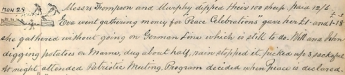 Nov 28 Messrs Thompson and Murphy dipped their 100 sheep. Paid 12/6.
Eva went gathering money for Peace Celebrations gave her £1 and 1-18
she gathered without going on German Line which is still to do. Will and John
digging potatoes in Manse, dug about half, rain stopped it, picked up 3 sacks
At night attended Patriotic Meeting. Program decided when peace is declared